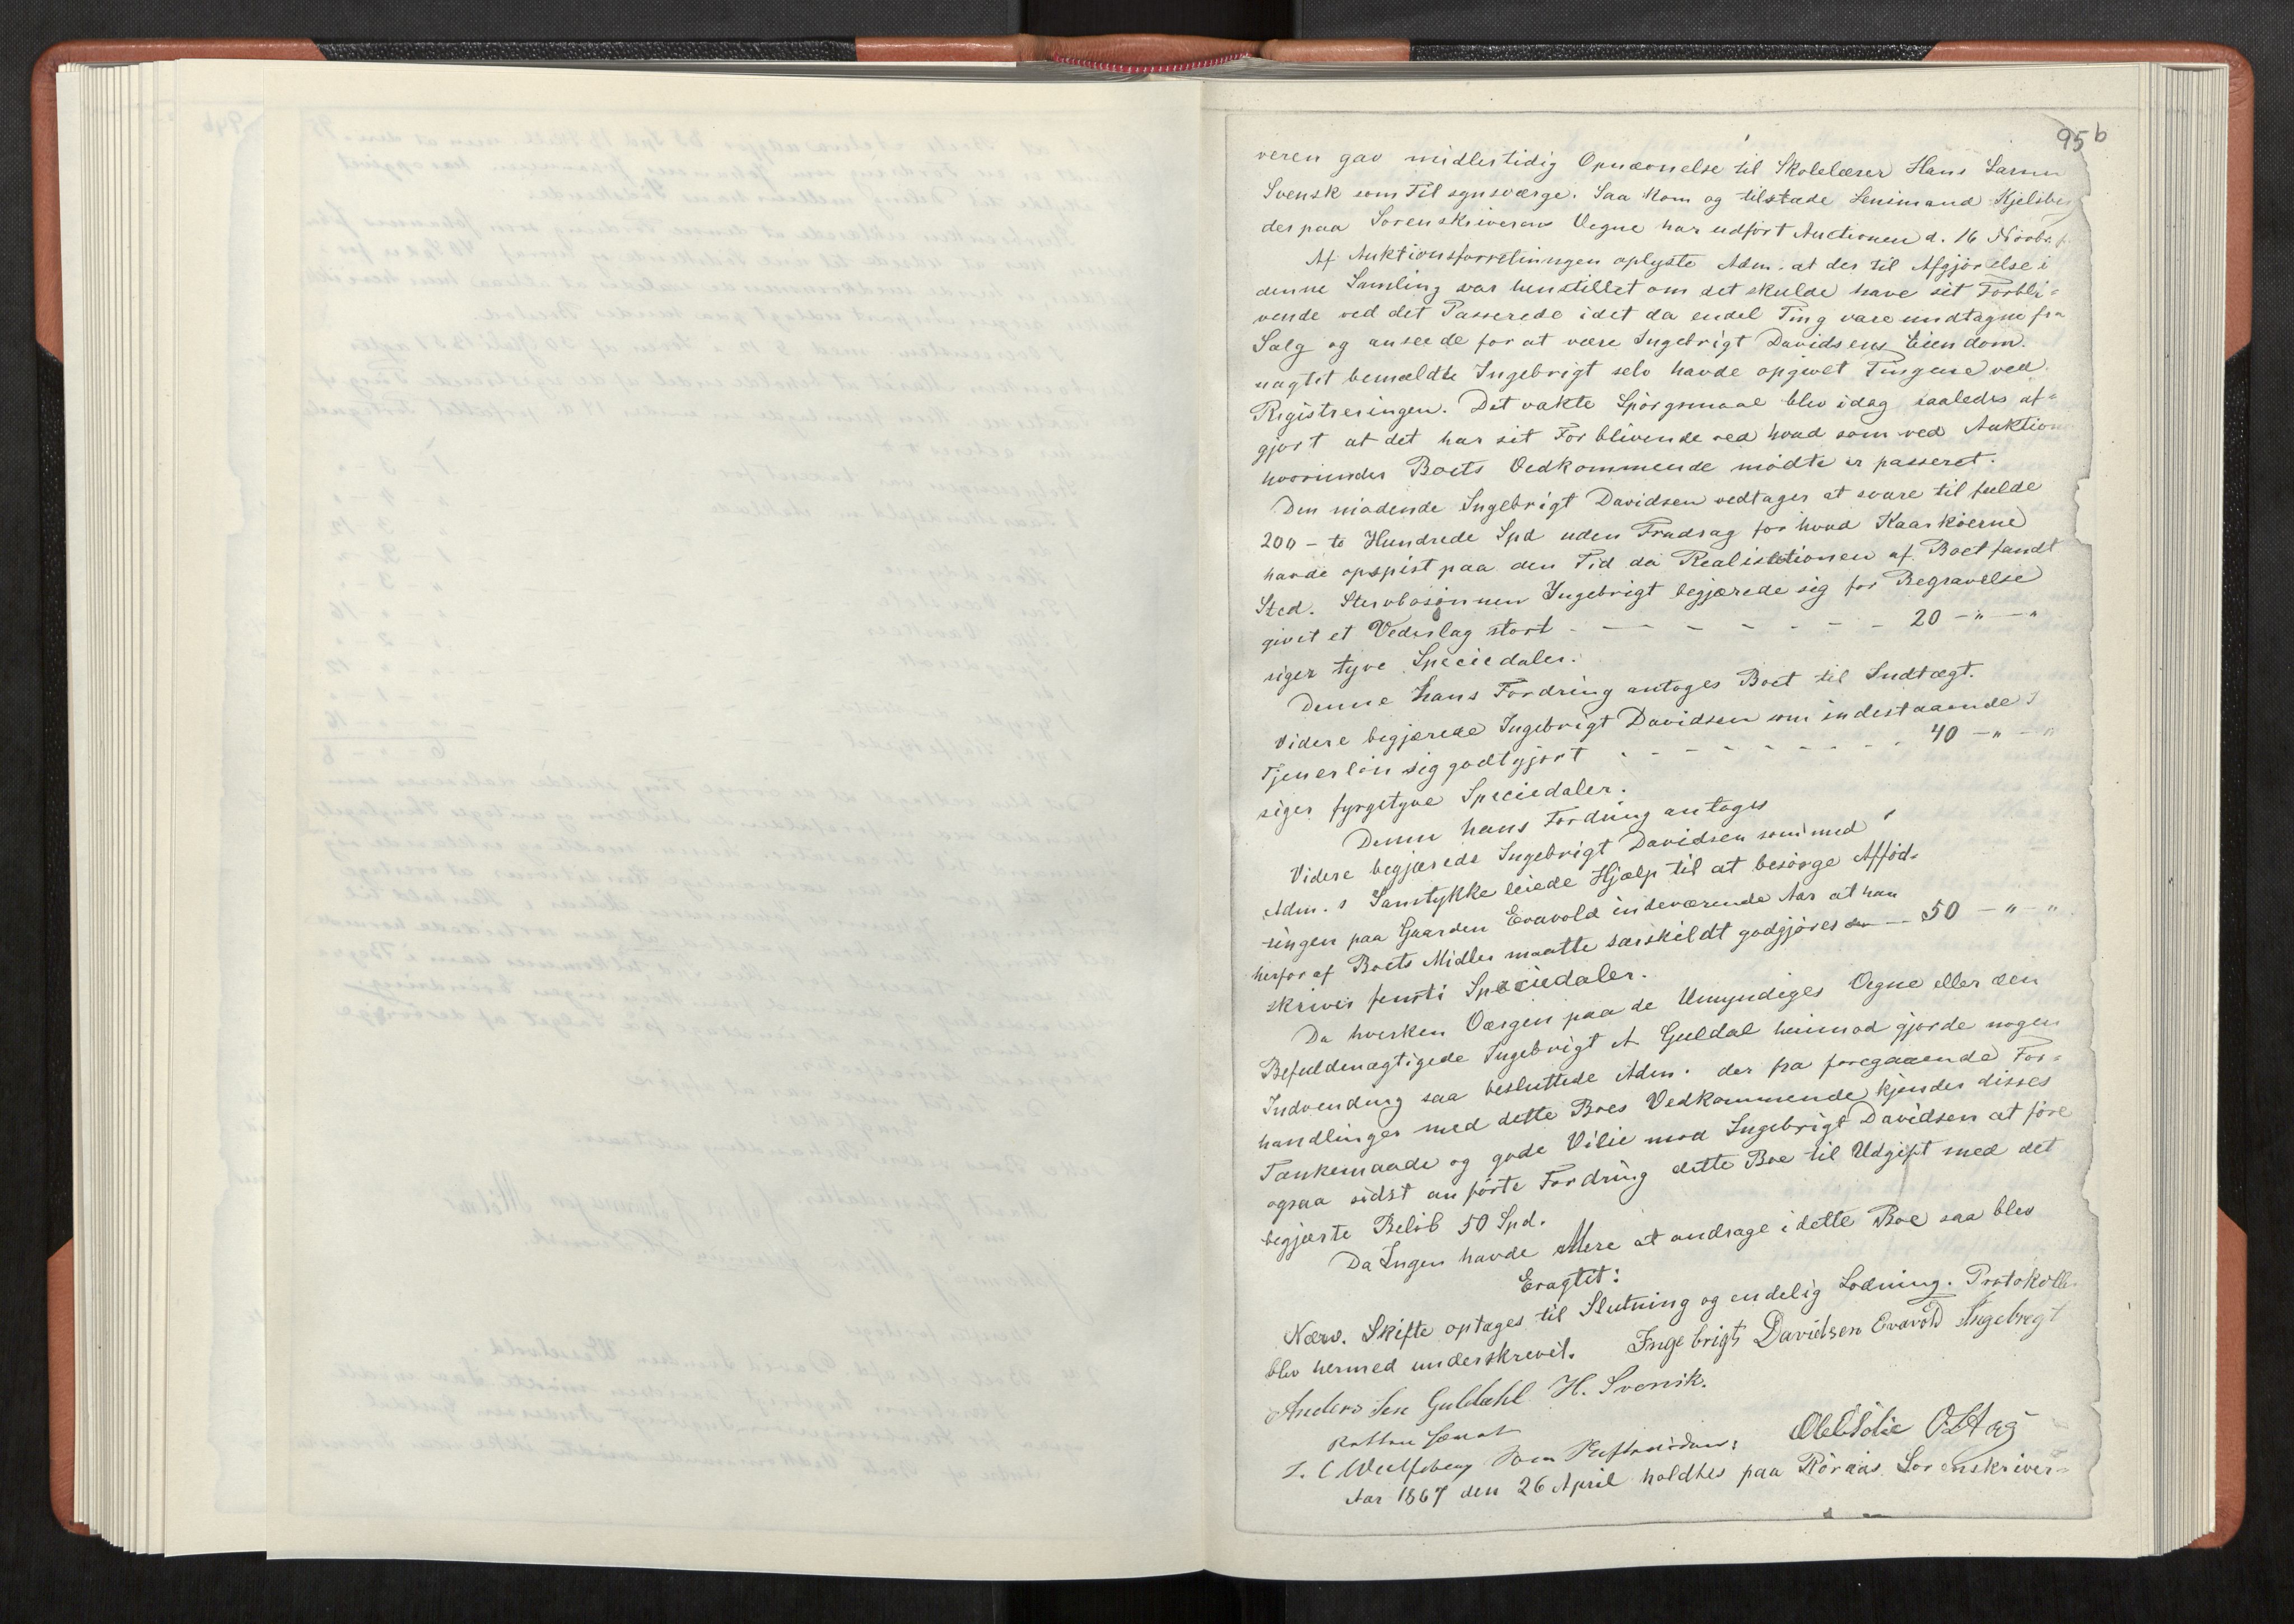 95 b
veren gav midlertidig Opnævnelse til Skolelærer Hans Larsen
Svensk som Tilsynsværge. Saa kom og tilstæde Lensmand Kjelsberg
der paa Sorenskriverens Vegne har udført Auctionen d. 16 Novbr.
Af Auktionsforretningen oplyste Adm. at der til Afgjørelse i
denne Samling var henstillet om det skulde have sit Forbli-
vende ved det Passerede idet da endel Ting vare undtagne fra
Salg og anseede for at være Ingebrigt Davidsens Eiendom.
uagtet bemældte Ingebrigt selv havde opgivet Tingene ved
Registreringen. Det vakte Spörgsmaal blev idag saaledes af-
gjort at det har sit Forblivende ved hvad som ved Auktion
hvorunder Boets Vedkommende mödte er passeret.
Den mödende Ingebrigt Davidsen vedtager at svare til fulde
200 – to Hundrede Spd uden Fradrag for hvad Kaarkjøerne
havde opspist paa den Tid da Realisationen af Boet fandt
Sted. Stervbosönnen Ingebrigt begjærede sig for Begravelse
givet et Vederlag stort - - - - - - - 20 – " – "
siger tyve Speciedaler.
Denne hans Fordring antoges Boet til Indtægt.
Videre begjærede Ingebrigt Davidsen som indestaaende
Tjenerlön sig godtgjort - - - - - - - - 40 – " – "
siger fyrgetyve Speciedaler.
Denne hans Fordring antoges
Videre begjærede Ingebrigt Davidsen som med
Adm. s Samtykke leiede Hjælp til at besörge Afföd-
ringen paa Gaarden Evavold indeværende Aar at han
herfor af Boets Midler maatte særskildt godgjöres – 50 – " – "
skriver femti Speciedaler.
Da hverken Værgen paa de Umyndiges Vegne eller den
Befuldmægtigede Ingebrigt A Guldal heimod gjorde nogen
Indvending saa besluttede Adm. der fra foregaaende For-
handlinger med dette Boes Vedkommende kjender disses
Tænkemaade og gode Vilie mod Ingebrigt Davidsen at före
ogsaa sidst anförte Fordring dette Boe til Udgift med det
begjærte Belöb 50 Spd.
Da Ingen havde Mere at andrage i dette Boe saa blev
Eragtet:
Nærv. Skifte optages til Slutning og endelig Lodning. Protokollen
blev hermed underskrevet. Ingebrigt Davidsen Evavold Ingebregt
Anders Sen Guldahl H. Svensk.
L. C Wulfsberg Som Skiftevidner: Ole Olsen
Aar 1867 den 26 April holdtes paa Röraas Sorenskriver-